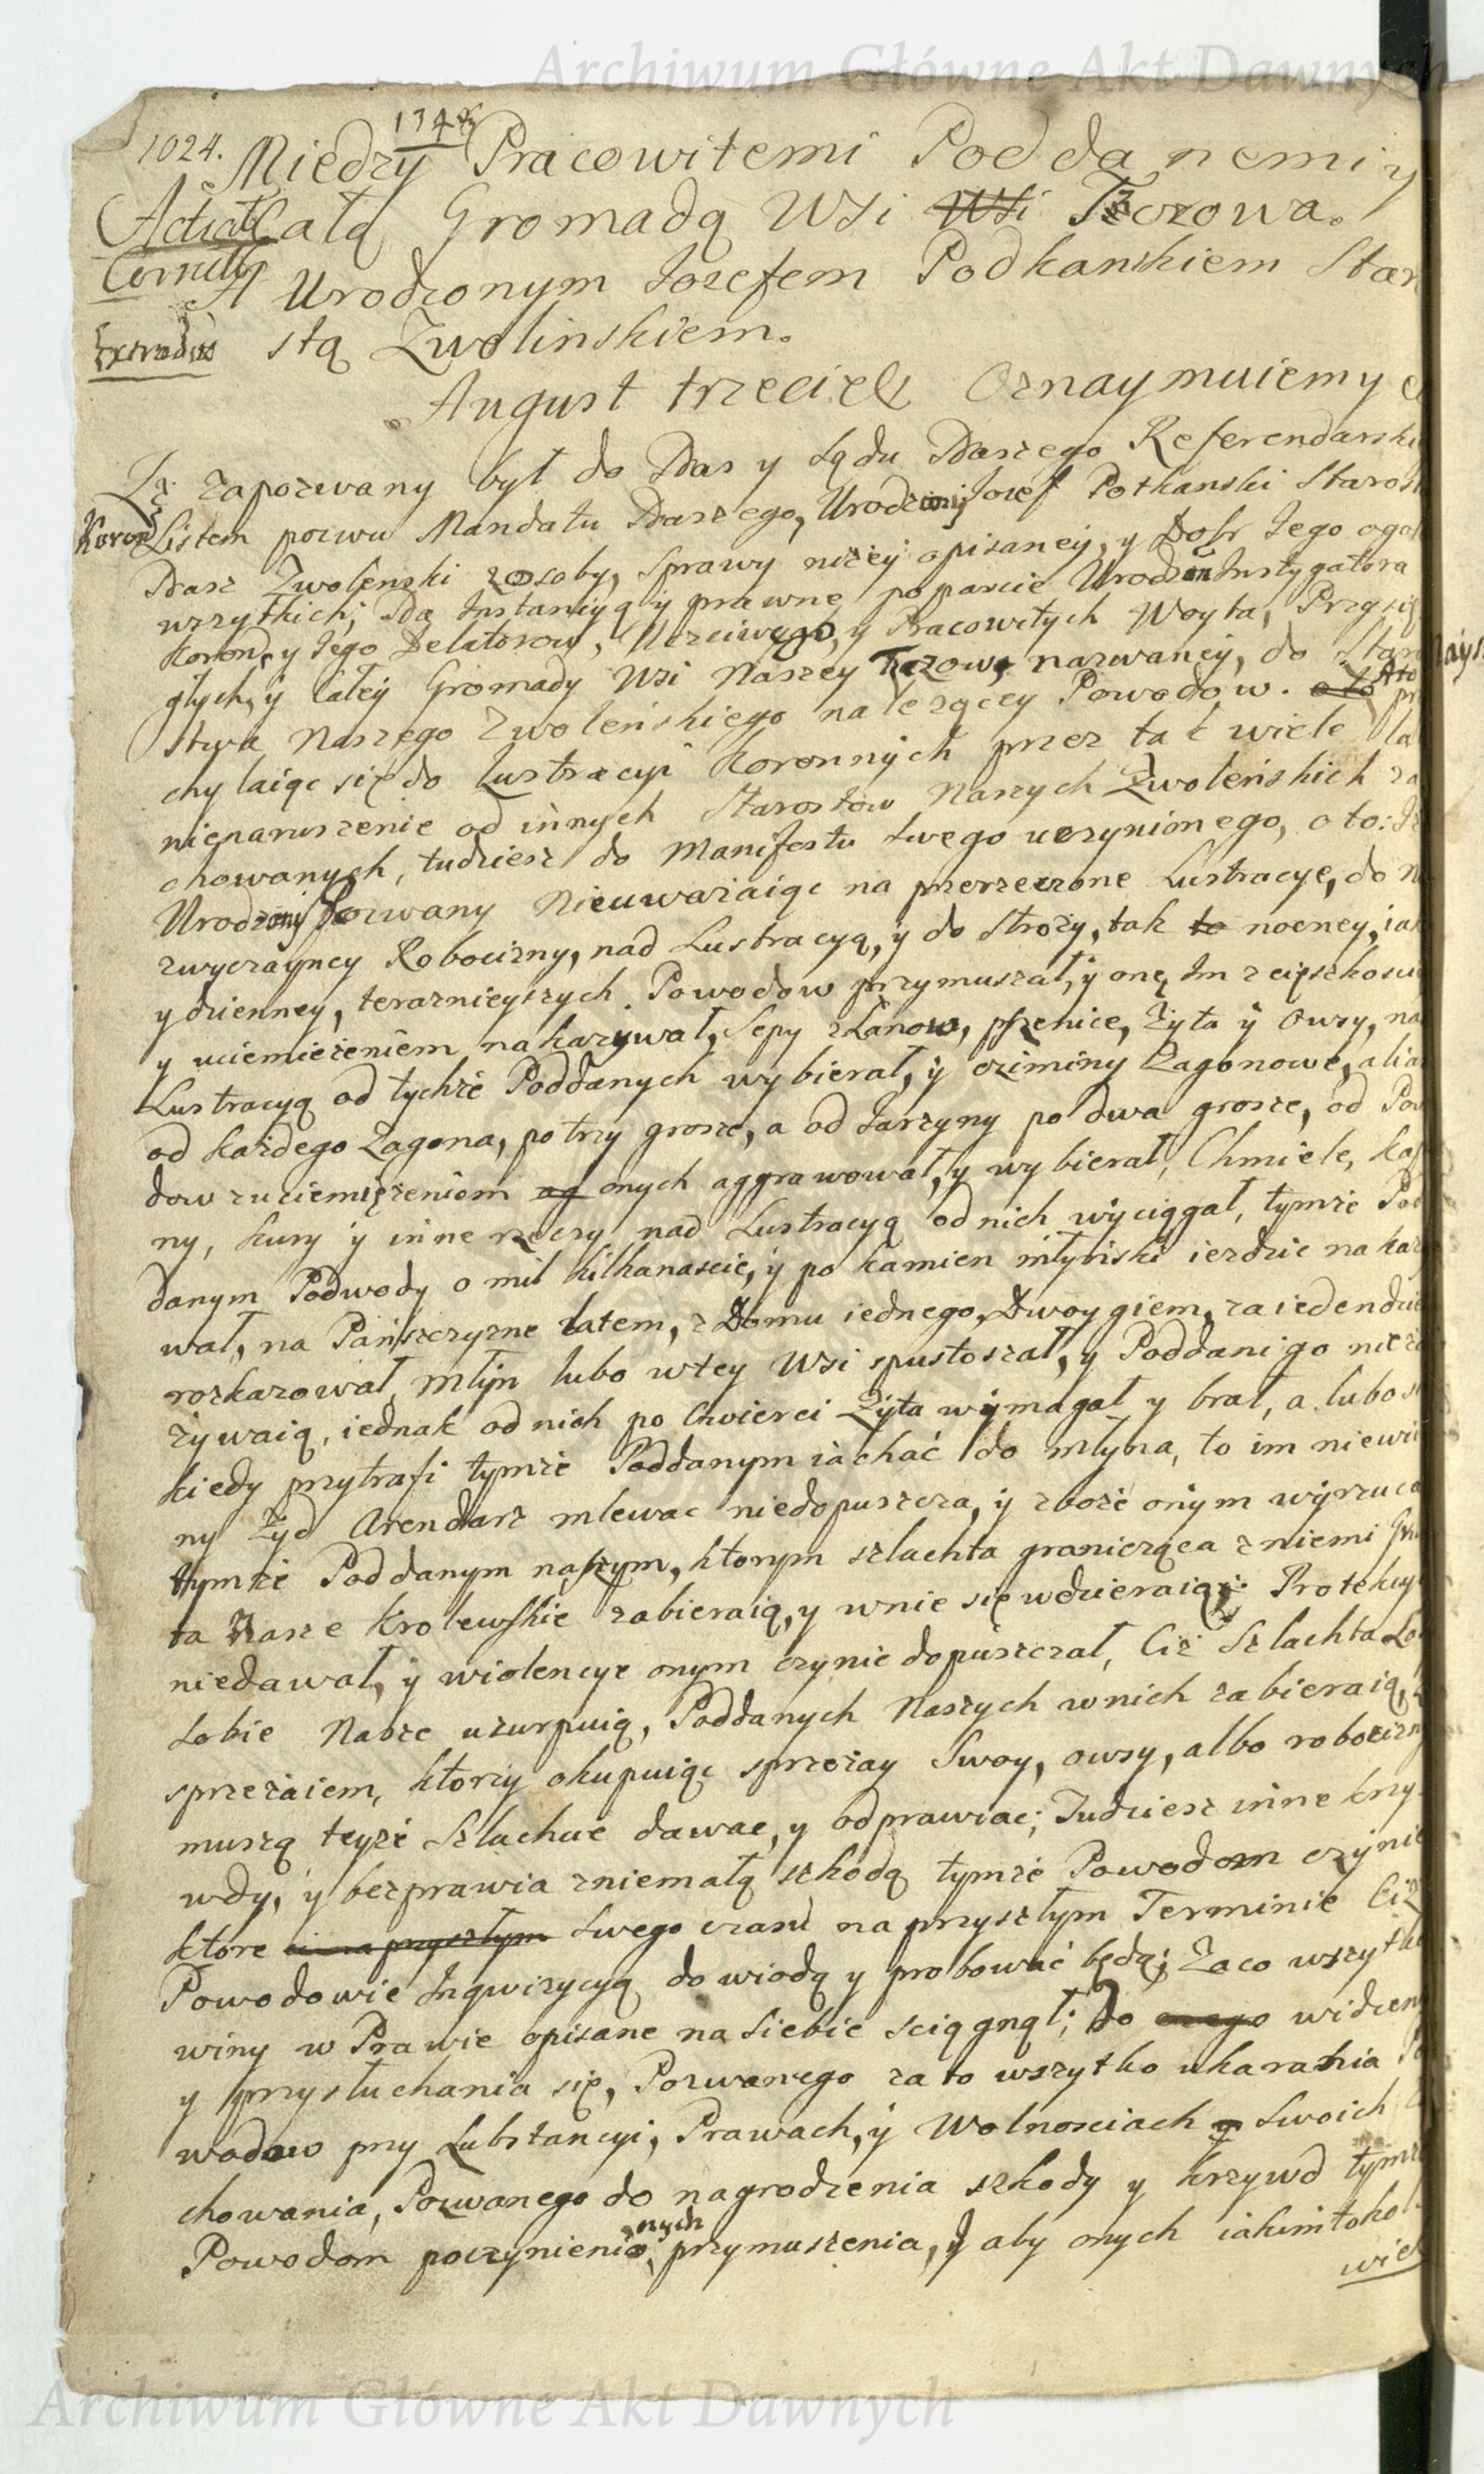 Archiwum Główne Akt Dawnych
1024.
Miedzy Pracowitemi Poddanemi y
Całą Gromadą Wsi Wsi Tczowa.
A Urodzonym Jozefem Podkanskiem Star
Extradus
stą Zwolinskiem.
August trzeciek Oznaymuiemy
Iż zapozwany był do Nas y Sądu Naszego Referendarski
Koron Listem pozwu Mandatu Naszego, Urodzony Jozef Potkanski Staros
Nasz Zwolenski z osoby, Sprawy niżey opisaney, y Dobr Jego ogol
wszytkich; Na Instancyą y prawne poparcie Urodzon Instygatora
Koron, y Jego Delatorow, Uczciwego, y Pracowitych Woyta, Przysię
głych, y Całey Gromady Wsi Naszey Tczowe nazwaney, do Star
stwa Naszego Zwoleńskiego należącey Powodow. a to A to pr
chylaiąc się do Lustracyi Koronnych przez tak wiele la
nieparuszenie od innych Starostow Naszych Zwoleńskich za
chowanych, tudziesz do Manifestu Swego uczynionego, o to: Iż
Urodzony Pozwany nieuważaiąc na przerzeczone Lustracye, do n
zwyczayney Robocizny, nad Lustracyą, y do Stroży, tak to nocney, iak
y dzienney, teraznieyszych Powodow przymuszał, y onę Im z cięszkosci
y uciemiężeniem nakazywał, Sepy z Łanow, pszenice, Zyta y Owsy, na
Lustracyą od tychże Poddanych wybierał, y cziminy Zagonowe, alia
od każdego Zagona, po trzy grosze, a od Jarzyny po dwa grosze, od Pow
dow z uciemiężeniem ag onych aggrawował, y wybierał, Chmiele, Kap
ny, kury y inne rzeczy nad Lustracyą od nich wyciągał, tymże Pod
danym Podwody o mil kilkanascie, y po kamien młyński iezdzic nakaz
wał, na Pańszczyzne latem, z Domu iednego, Dwoygiem, za ieden dzie
roskazował, młyn lubo w tey Wsi spustoszał, y Poddani go nie
żywaią, iednak od nich po Cwierci Zyta wymagał y brał, a lubo s
kiedy przytrafi tymże Poddanym iachać do młyna, to im niewi
ny Zyd Arendarz mlewac niedopuszcza, y zboże onym wyrzuca
tymże Poddanym naszym, ktorym szlachta graniczącа z niemi Gru
ta Nasze Krolewskie zabieraią, y w nie się wdzieraią; Protekcy
niedawał, y wiolencye onym czynic dopuszczał, Ciż Szlachta Lo
Sobie Nasze uzurpuią, Poddanych Naszych w nich zabieraią,
sprzeżaiem, ktorzy okupuiąc sprzeżay Swoy, owsy, albo robocizn
muszą teyże Szlachcie dawac, y odprawiac; Tudziesz inne krzy-
wdy, y bezprawia z niemałą szkodą tymże Powodom czynic
ktore ci na przyszłym Swego czasu na przyszłym Terminie Ciż
Powodowie Inqwizycyą dowiodą y probować będą; Zaco wszytk
winy w Prawie opisane na Siebie sciągnął; Do onego widzen
y przysłuchania się, Pozwanego za to wszytko ukarania Po
wodow przy Substancyi, Prawach, y Wolnosciach y Swoich
chowania, Pozwanego do nagrodzenia szkody y krzywd tymż
Powodom poczynienio nych przymuszenia, y aby onych iakimtokol
wiek
Archiwum Główne Akt Dawnych